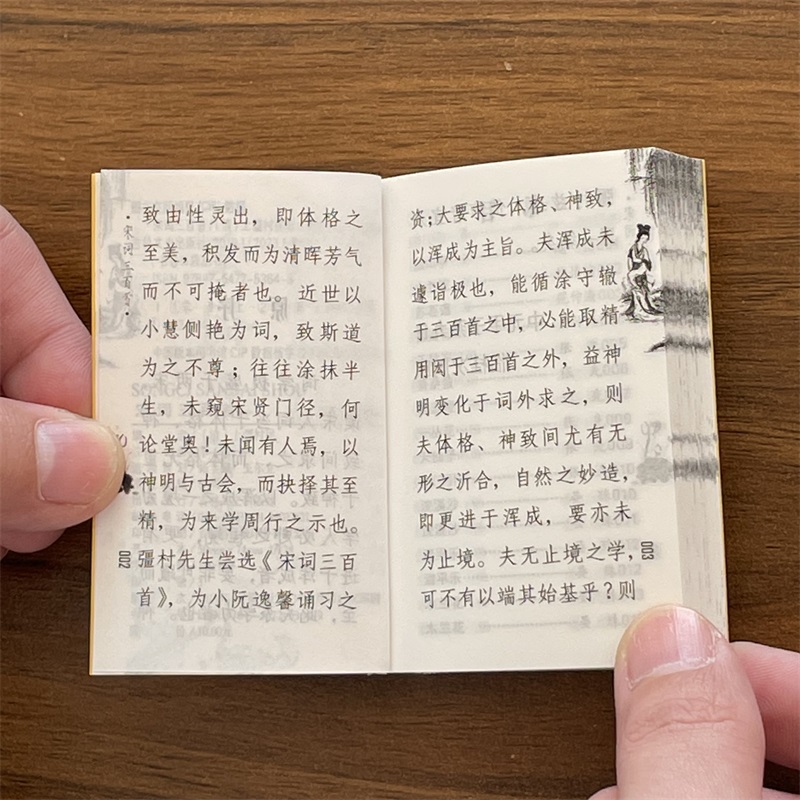 ·宋词三百首·
致由性灵出，即体格之
至美，积发而为清晖芳气
而不可掩者也。近世以
小慧侧艳为词，致斯道
为之不尊；往往涂抹半
生，未窥宋贤门径，何
论堂奥！未闻有人焉，以
神明与古会，而抉择其至
精，为来学周行之示也。
彊村先生尝选《宋词三百
首》，为小阮逸馨诵习之
002
资；大要求之体格、神致，
以浑成为主旨。夫浑成未
遽诣极也，能循涂守辙
于三百首之中，必能取精
用闳于三百首之外，益神
明变化于词外求之，则
夫体格、神致间尤有无
形之沂合，自然之妙造，
即更进于浑成，要亦未
为止境。夫无止境之学，
可不有以端其始基乎？则
003